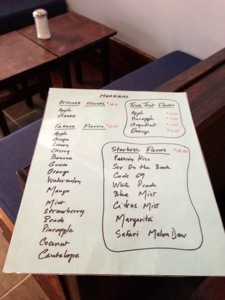 Flavors
Apple
Fakher Flavors
Apple
Grape
Lemon
Cherry
Banana
Guava
Orange
Watermelon
Mango
Mint
Strawberry
Peach
Pineapple
Coconut
Cantalope
Real Fruit Flavors
Apple
Pineapple
Grapefruit
Orange
Starbuzz Flavors
Passion Kiss
Sex On the Beach
Code 69
White Peach
Blue Mist
Citrus Mist
Margarita
Safari Melon Dew